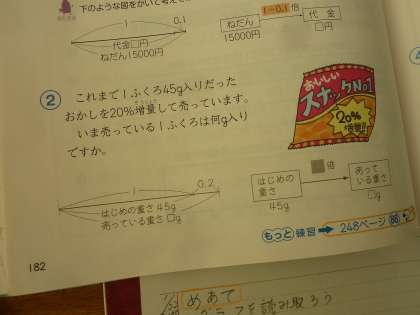 下のような図をかいて考え
1
0.1
代金□円
ねだん15000円
ねだん
15000円
1-0.1 倍
代金
□円
2
これまで1ふくろ45g入りだった
おかしを20%増量して売っています。
いま売っている1ふくろは何g入り
ですか。
おいしい
スナックNo.1
20%
増量!!
1
0.2
はじめの重さ45g
売っている重さ□g
はじめの
重さ
45g
倍
売って
いる重さ
□g
もっと練習 248ページ 86
182
めあて
グラフを読み取ろう